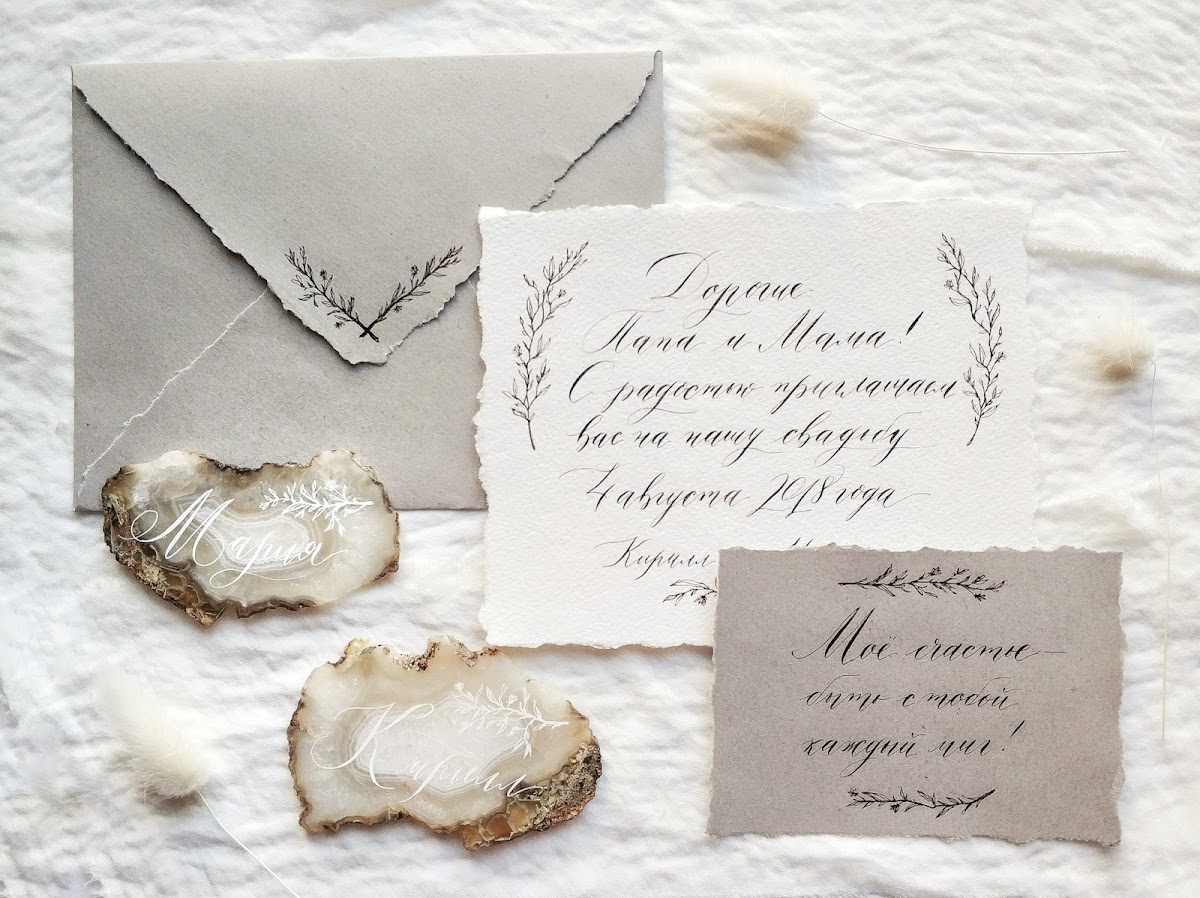 Дорогие
Папа и Мама!
С радостью приглашаем
вас на нашу свадьбу
4 августа 2018 года
Кирилл
Мария
Кирилл
Моё счастье –
быть с тобой
каждый миг!